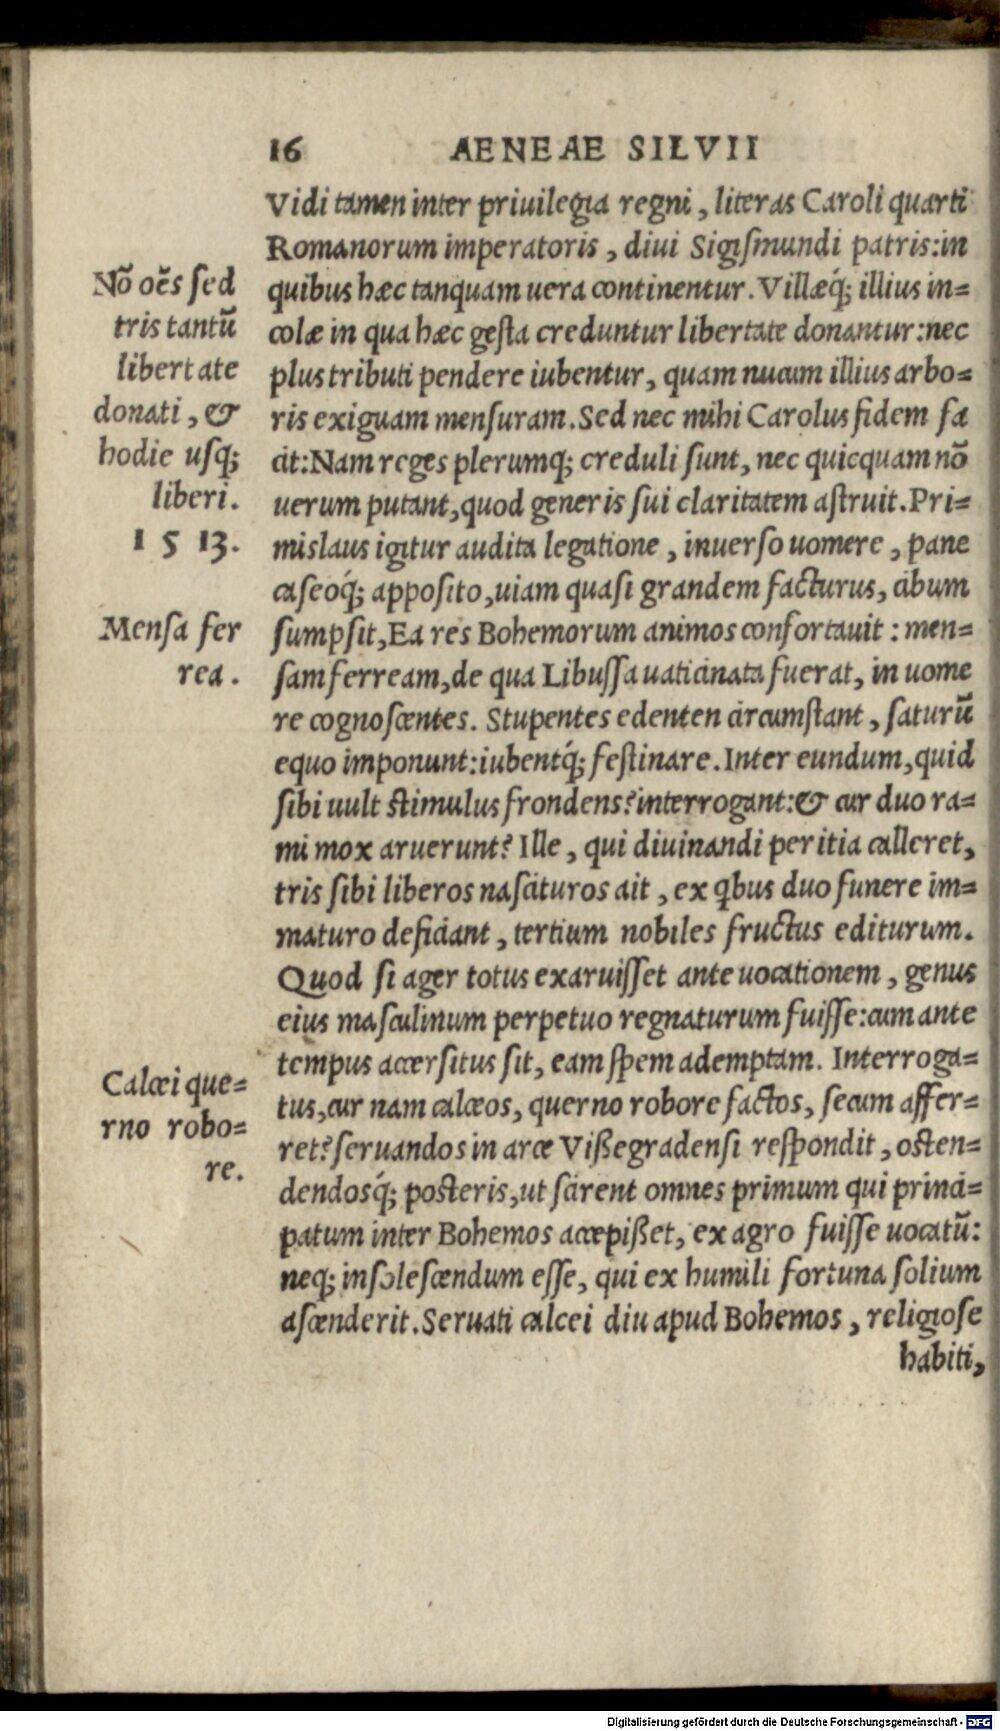 16 AENEAE SILVII
Vidi tamen inter priuilegia regni, literas Caroli quarti
Romanorum imperatoris, diui Sigiſmundi patris: in
quibus hæc tanquam uera continentur. Villæq́; illius in=
colæ in qua hæc geſta creduntur libertate donantur: nec
plus tributi pendere iubentur, quam nucum illius arbo=
ris exiguam menſuram. Sed nec mihi Carolus fidem fa
cit: Nam reges plerumq; creduli ſunt, nec quicquam nō
uerum putant, quod generis ſui claritatem aſtruit. Pri=
mislaus igitur audita legatione, inuerſo uomere, pane
caſeoq́; appoſito, uiam quaſi grandem facturus, cibum
ſumpſit, Ea res Bohemorum animos confortauit: men=
ſam ferream, de qua Libuſſa uaticinata fuerat, in uome
re cognoſcentes. Stupentes edenten circumſtant, ſaturū
equo imponunt: iubentq́; feſtinare. Inter eundum, quid
ſibi uult ſtimulus frondens? interrogant: & cur duo ra=
mi mox aruerunt? Ille, qui diuinandi peritia calleret,
tris ſibi liberos naſcituros ait, ex qbus duo funere im=
maturo deficiant, tertium nobiles fructus editurum.
Quod ſi ager totus exaruiſſet ante uocationem, genus
eius maſculinum perpetuo regnaturum fuiſſe: cum ante
tempus accerſitus ſit, eam ſpem ademptam. Interroga=
tus, cur nam calceos, querno robore factos, ſecum affer=
ret? ſeruandos in arce Vißegradenſi reſpondit, oſten=
dendosq́; poſteris, ut ſcirent omnes primum qui princi=
patum inter Bohemos accepißet, ex agro fuiſſe uocatū:
neq; inſoleſcendum eſſe, qui ex humili fortuna ſolium
aſcenderit. Seruati calcei diu apud Bohemos, religioſe
habiti,
Nō oēs ſed
tris tantū
libertate
donati, &
hodie uſq;
liberi.
1 5 13.
Menſa fer
rea.
Calcei que=
rno robo=
re.
Digitalisierung gefördert durch die Deutsche Forschungsgemeinschaft - DFG